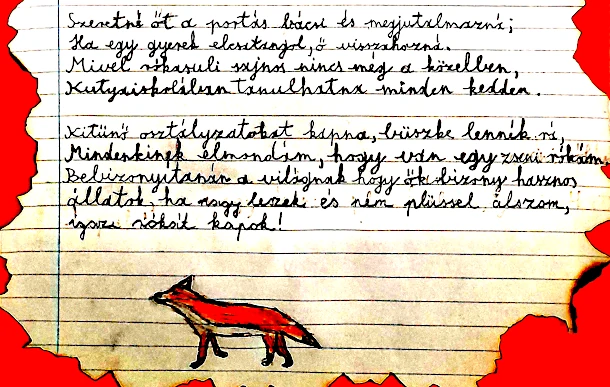 Szeretné őt a portás bácsi és megjutalmazná;
Ha egy gyerek elcsatangol, ő visszahozná.
Mivel rókasuli sajnos nincs még a közelben,
Kutyaiskolában tanulhatna minden kedden.
Kitünő osztályzatokat kapna, büszke lennék rá,
Mindenkinek elmondanám, hogy van egy zseni rókám.
Bebizonyítanám a világnak hogy ők bizony hasznos
állatok, ha nagy leszek és nem plüssel alszom,
igazi rókát kapok!